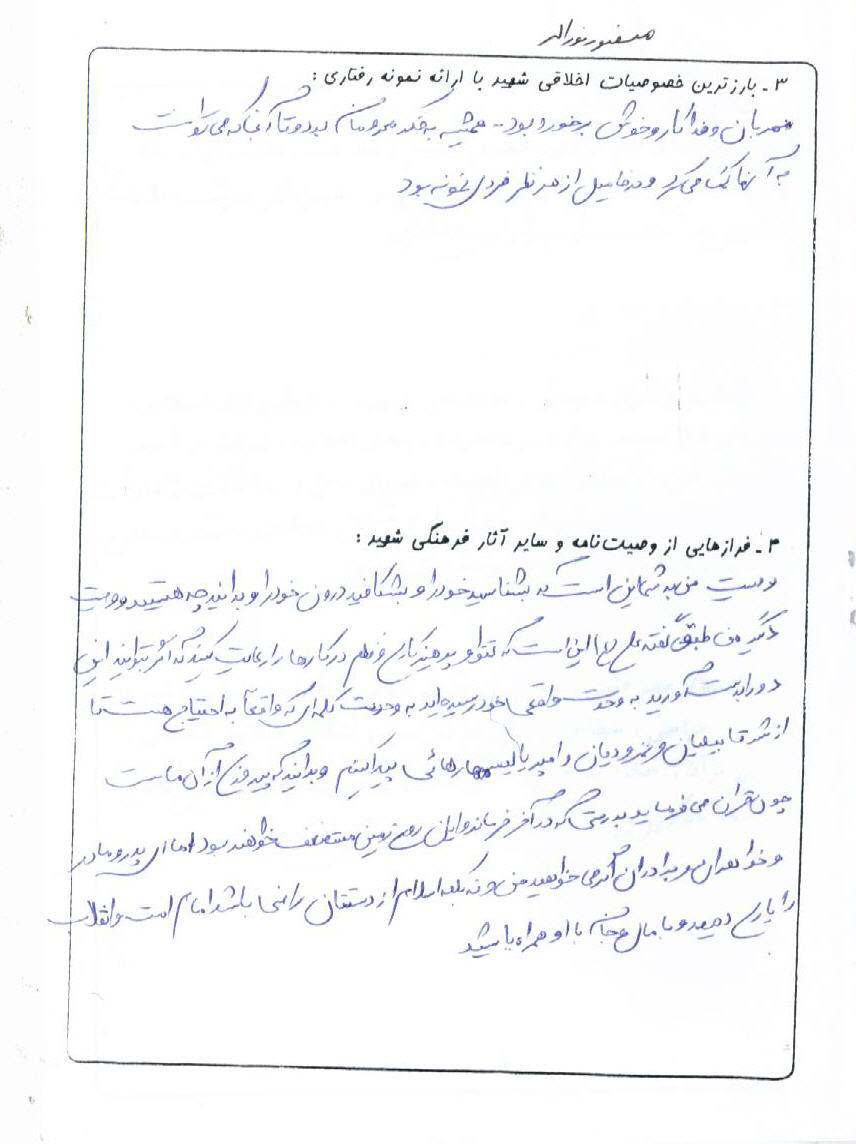 ۳ـ بارزترین خصوصیات اخلاقی شهید با ارائه نمونه رفتاری :
مهربان و فداکار و خوش برخورد بود ـ همیشه به فکر محرومان بود و تا آنجا که می توانست
به آنها کمک می کرد و در فامیل از هر نظر فردی نمونه بود
۴ـ فرازهایی از وصیت‌نامه و سایر آثار فرهنگی شهید :
وصیت من به شما این است که بشناسید خود را و بشکافید درون خود را و بدانید چه هستید و وصیت
دیگر من طبق گفته علی (ع) این است که تقوا و پرهیزکاری و نظم در کارها را رعایت کنید که اگر بتوانید این
دو را بدست آورید به وحدت واقعی خود رسیده‌اید به وحدت کلمه‌ای که واقعاً به احتیاج هست تا
از شر قابیلیان و نمرودیان و امپریالیسم رهائی پیدا کنیم و بدانید که پیروزی از آن ماست
چون قرآن می فرماید بدرستی که در آخر فرمانروایان روی زمین مستضعف خواهند بود اما ای پدر و مادر
و خواهران و برادران اگر می خواهید من و نه بلکه اسلام از دستتان راضی باشد امام امت و انقلاب
را یاری دهید و با مال و جان با او همراه باشید